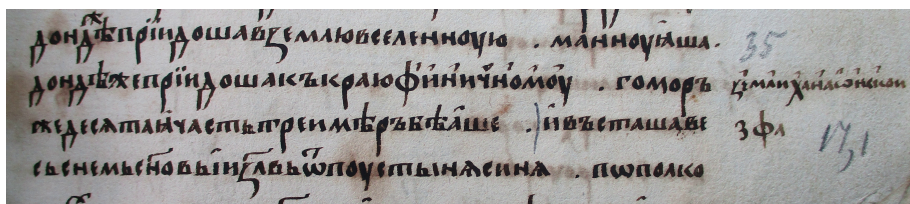 дондѣⷤ прїидоша в҃ землю вселенноую . манноу ꙗша . 35
дондѣже прїидоша къ краю фи́ничномоу . гоморъ
же десятаꙗ часть трей мѣръ бѣаше . и въсташа ве зфл 171
сь сънемь сн҃овы ꙇ҃илвь ѿ поустыня синя . п ѡполко